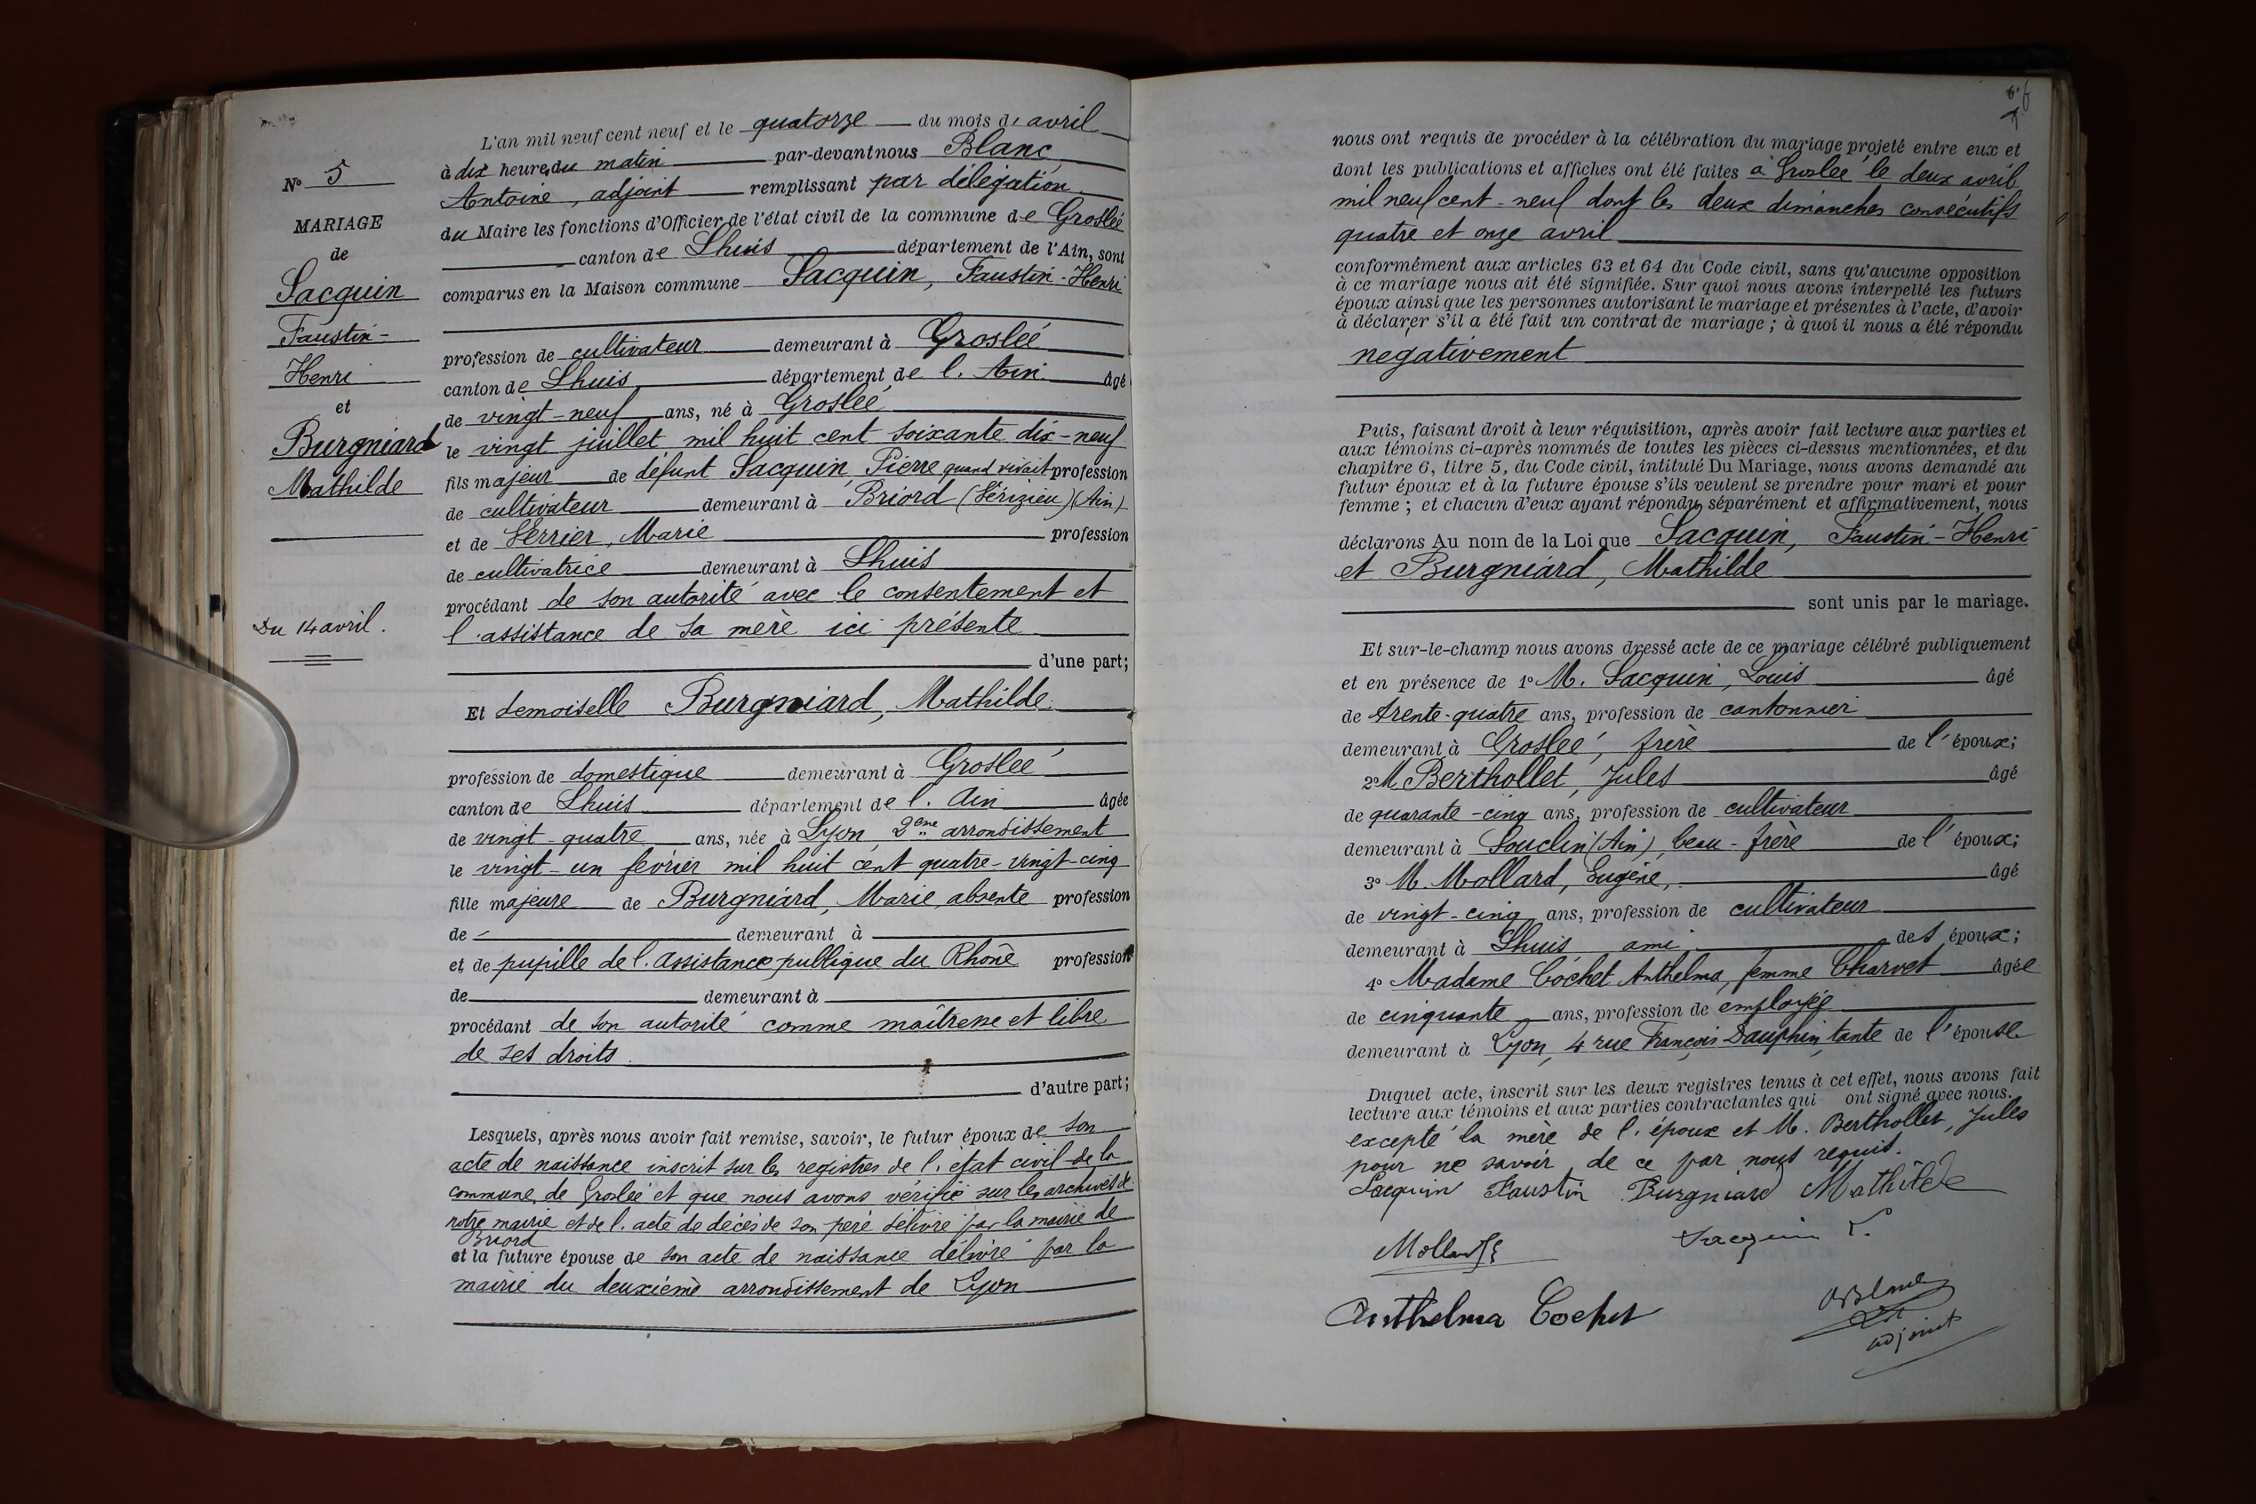 N° 5
MARIAGE
de
Sacquin
Faustin-
Henri
et
Burgniard
Mathilde
Du 14 avril.
L'an mil neuf cent neuf et le quatorze du mois d'avril
à dix heures du matin par-devant nous Blanc
Antoine, adjoint remplissant par délégation
du Maire les fonctions d'Officier de l'état civil de la commune de Groslée
canton de Lhuis département de l'Ain, sont
comparus en la Maison commune Sacquin, Faustin-Henri
profession de cultivateur demeurant à Groslée
canton de Lhuis département de l'Ain âgé
de vingt-neuf ans, né à Groslée
le vingt juillet mil huit cent soixante dix-neuf
fils majeur de défunt Sacquin, Pierre, quand vivait profession
de cultivateur demeurant à Briord (Vérizieu) (Ain)
et de Verrier, Marie profession
de cultivatrice demeurant à Lhuis
procédant de son autorité avec le consentement et
l'assistance de sa mère ici présente
d'une part;
Et demoiselle Burgniard, Mathilde.
profession de domestique demeurant à Groslée
canton de Lhuis département de l'Ain âgée
de vingt-quatre ans, née à Lyon, 2ème arrondissement
le vingt-un février mil huit cent quatre-vingt-cinq
fille majeure de Burgniard, Marie, absente profession
de demeurant à
et de pupille de l'assistance publique du Rhône profession
de demeurant à
procédant de son autorité comme maîtresse et libre
de ses droits
d'autre part;
Lesquels, après nous avoir fait remise, savoir, le futur époux de son
acte de naissance inscrit sur les registres de l'état civil de la
commune de Groslée et que nous avons vérifié sur les archives de
notre mairie et de l'acte de décès de son père délivré par la mairie de
Briord
et la future épouse de son acte de naissance délivré par la
mairie du deuxième arrondissement de Lyon
nous ont requis de procéder à la célébration du mariage projeté entre eux et
dont les publications et affiches ont été faites à Groslée le deux avril
mil neuf cent-neuf dont les deux dimanches consécutifs
quatre et onze avril
conformément aux articles 63 et 64 du Code civil, sans qu'aucune opposition
à ce mariage nous ait été signifiée. Sur quoi nous avons interpellé les futurs
époux ainsi que les personnes autorisant le mariage et présentes à l'acte, d'avoir
à déclarer s'il a été fait un contrat de mariage; à quoi il nous a été répondu
negativement
Puis, faisant droit à leur réquisition, après avoir fait lecture aux parties et
aux témoins ci-après nommés de toutes les pièces ci-dessus mentionnées, et du
chapitre 6, titre 5, du Code civil, intitulé Du Mariage, nous avons demandé au
futur époux et à la future épouse s'ils veulent se prendre pour mari et pour
femme; et chacun d'eux ayant répondu séparément et affirmativement, nous
déclarons Au nom de la Loi que Sacquin, Faustin-Henri
et Burgniard, Mathilde
sont unis par le mariage.
Et sur-le-champ nous avons dressé acte de ce mariage célébré publiquement
et en présence de 1° M. Sacquin, Louis âgé
de trente-quatre ans, profession de cantonnier
demeurant à Groslée, frère de l'époux;
2° M. Berthollet, Jules âgé
de quarante-cinq ans, profession de cultivateur
demeurant à Souclin (Ain), beau-frère de l'époux;
3° M. Mollard, Eugène, âgé
de vingt-cinq ans, profession de cultivateur
demeurant à Lhuis ami des époux;
4° Madame Cochet Anthelma, femme Charvet âgée
de cinquante ans, profession de employée
demeurant à Lyon, 4 rue François Dauphin, tante de l'épouse
Duquel acte, inscrit sur les deux registres tenus à cet effet, nous avons fait
lecture aux témoins et aux parties contractantes qui ont signé avec nous.
excepté la mère de l'époux et M. Berthollet, Jules
pour ne savoir de ce par nous requis.
Sacquin Faustin Burgniard Mathilde
Mollard E Sacquin L.
Anthelma Cochet
A Blanc
adjoint